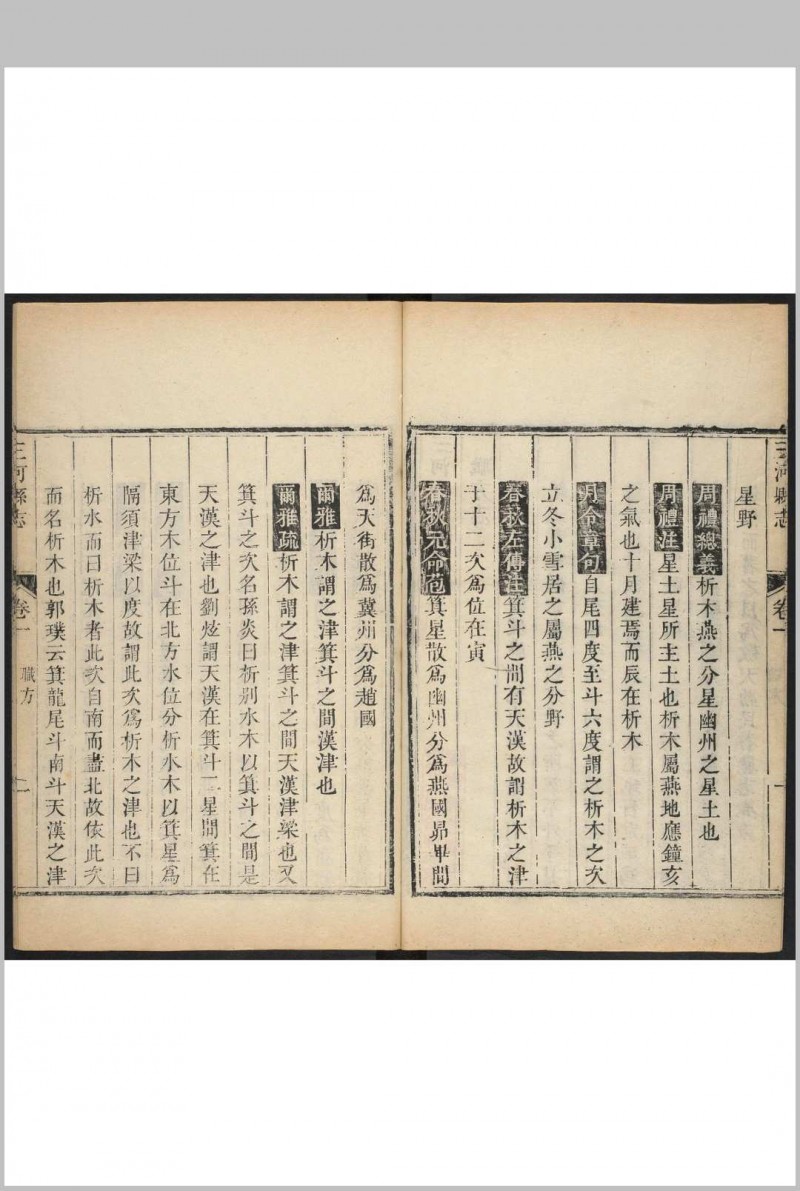 三河縣志
卷一
一
星野
周禮總義析木燕之分星幽州之星土也
周禮注星土星所主土也析木屬燕地應鐘亥
之氣也十月建焉而辰在析木
月令章句自尾四度至斗六度謂之析木之次
立冬小雪居之屬燕之分野
春秋左傳注箕斗之間有天漢故謂析木之津
于十二次爲位在寅
春秋元命包箕星散爲幽州分爲燕國昴畢間
爲天街散爲冀州分爲趙國
爾雅析木謂之津箕斗之間漢津也
爾雅疏析木謂之津箕斗之間天漢津梁也又
箕斗之次名孫炎曰析别水木以箕斗之間是
天漢之津也劉炫謂天漢在箕斗二星間箕在
東方木位斗在北方水位分析水木以箕星爲
隔須津梁以度故謂此次爲析木之津也不曰
析水而曰析木者此次自南而盡北故依此次
而名析木也郭璞云箕龍尾斗南斗天漢之津
三河縣志
卷一
職方